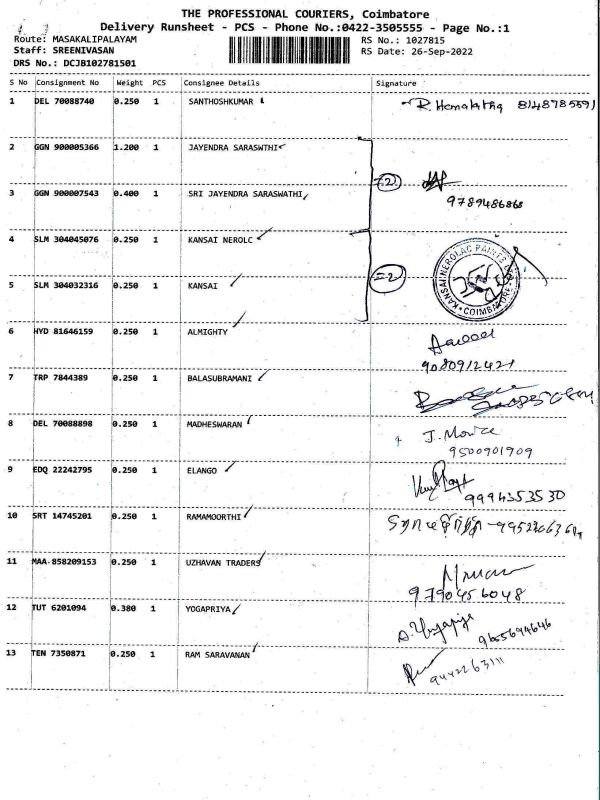 THE PROFESSIONAL COURIERS, Coimbatore
Delivery Runsheet - PCS - Phone No.:0422-3505555 - Page No.:1
Route: MASAKALIPALAYAM RS No.: 1027815
Staff: SREENIVASAN RS Date: 26-Sep-2022
DRS No.: DCJB102781501
S No Consignment No Weight PCS Consignee Details Signature
1 DEL 70088740 0.250 1 SANTHOSHKUMAR R. Hemalatha 8148785591
2 GGN 900005366 1.200 1 JAYENDRA SARASWTHI
=2
3 GGN 900007543 0.400 1 SRI JAYENDRA SARASWATHI 9789486868
4 SLM 304045076 0.250 1 KANSAI NEROLC
=2 KANSAI NEROLAC PAINTS COIMBATORE
5 SLM 304032316 0.250 1 KANSAI
6 HYD 81646159 0.250 1 ALMIGHTY
9080912421
7 TRP 7844389 0.250 1 BALASUBRAMANI
8 DEL 70088898 0.250 1 MADHESWARAN J.
9500901909
9 EDQ 22242795 0.250 1 ELANGO
9994353530
10 SRT 14745201 0.250 1 RAMAMOORTHI
11 MAA 858209153 0.250 1 UZHAVAN TRADERS
9790456048
12 TUT 6201094 0.380 1 YOGAPRIYA 9655694646
13 TEN 7350871 0.250 1 RAM SARAVANAN 9442263111